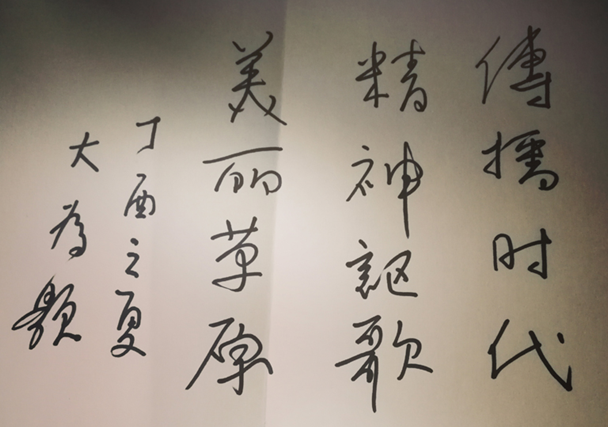 傳播时代
精神謳歌
美丽草原
丁酉之夏
大为题